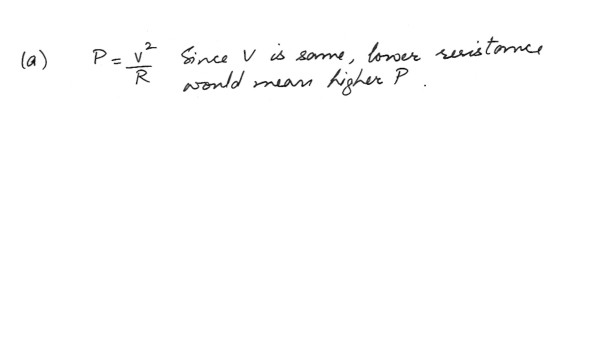 (a) P = V²/R Since V is same, lower resistance
would mean higher P.